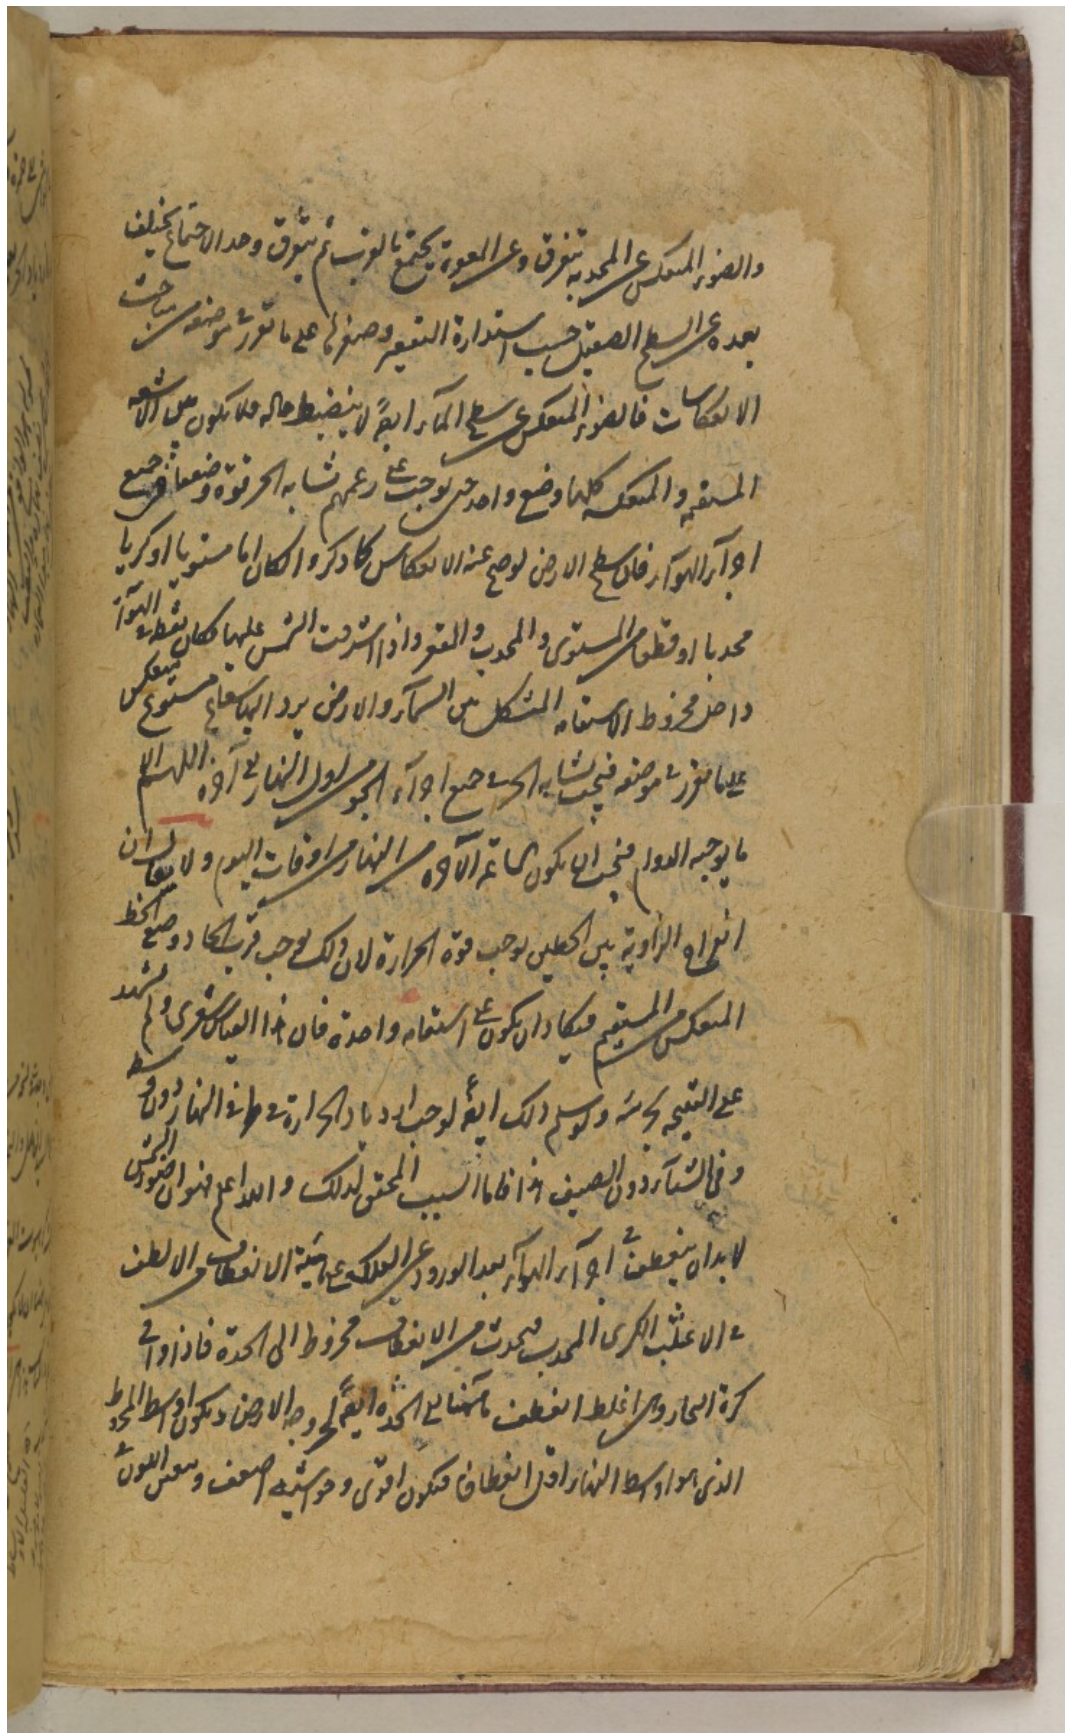 والضوء المنعكس عن المحدبة يتفرق وعن المقعرة يجتمع بالقرب ثم يتفرق وحد الاجتماع يختلف
بعده عن السطح الصقيل حسب استدارة التقعير وصغرها على ما تقرر في موضعه من مباحث
الانعكاسات فالضوء المنعكس عن سطح الماء ايضا لا ينضبط حاله فلا يكون بين الاشعة
المستقيمة والمنعكسة كلها وضع واحد حتى يوجب على زعمهم تشابه الحر قوة وضعفا في جميع
اجزآء الهوآء فان سطح الارض لو صح عنه الانعكاس كما ذكروا لكان اما مستويا او كريا
محدبا او قطعا من المستوى والمحدب والمقعر واذا اشرقت الشمس عليها فكان نقطة في الهوآء
داخل مخروط الاستقامة المتشكل بين السمآء والارض يرد اليها شعاع مستو غير منعكس
على ما تقرر في موضعه فيجب تشابه الحر في جميع اجزآء الجو من اول النهار الى آخره اللهم الا
ما يوجبه الدوام فيجب ان يكون الساعة الآخرة من النهار من اوقات اليوم ولا يقال ان
انفراج الزاوية بين الخطين يوجب قوة الحرارة لان ذلك يوجب قرب اتحاد وضع الخط
المنعكس من المستقيم فيكاد ان يكون على استقامة واحدة فان هذا القياس شعرى ولم يشهد
على النتيجة تجربة ولو سلم ذلك ايضا لوجب ازدياد الحرارة في طرفى النهار دون وسطه
وفى الشتآء دون الصيف هذا فاما السبب المحقق لذلك والله اعلم فهو ان ضوء الشمس
لا بد ان ينعطف في اجزآء الهوآء بعد الورود عن الفلك على هيئة الانعطاف من الالطف
في الاغلظ الكرى المحدب فيحدث من الانعطاف مخروط الى الحدة فاذا وافى
كرة البخار وهى اغلظ انعطف ثانيا الى الحدة ايضا نحو وجه الارض ويكون اوسط المخروط
الذى هو اوسط النهار اقل انعطافا فيكون اقوى وحواشيه اضعف